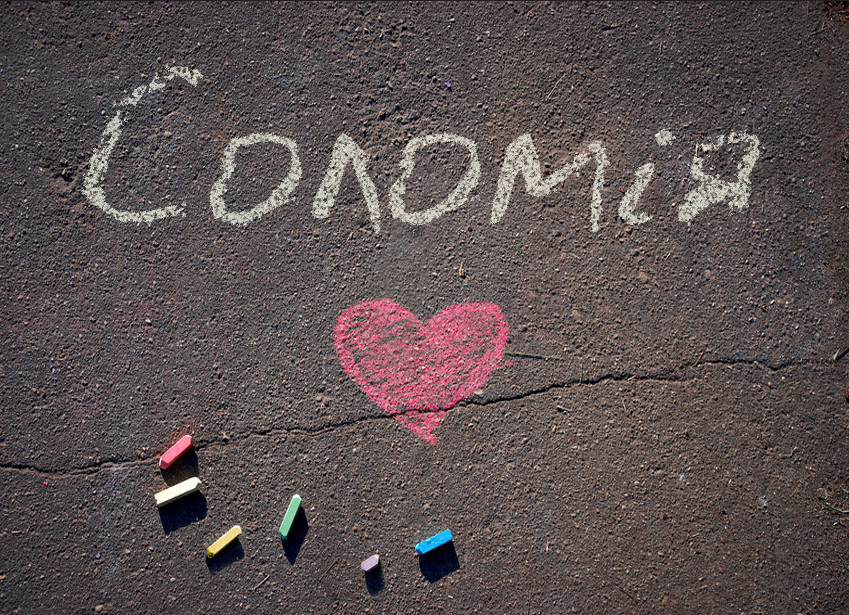 Соломія